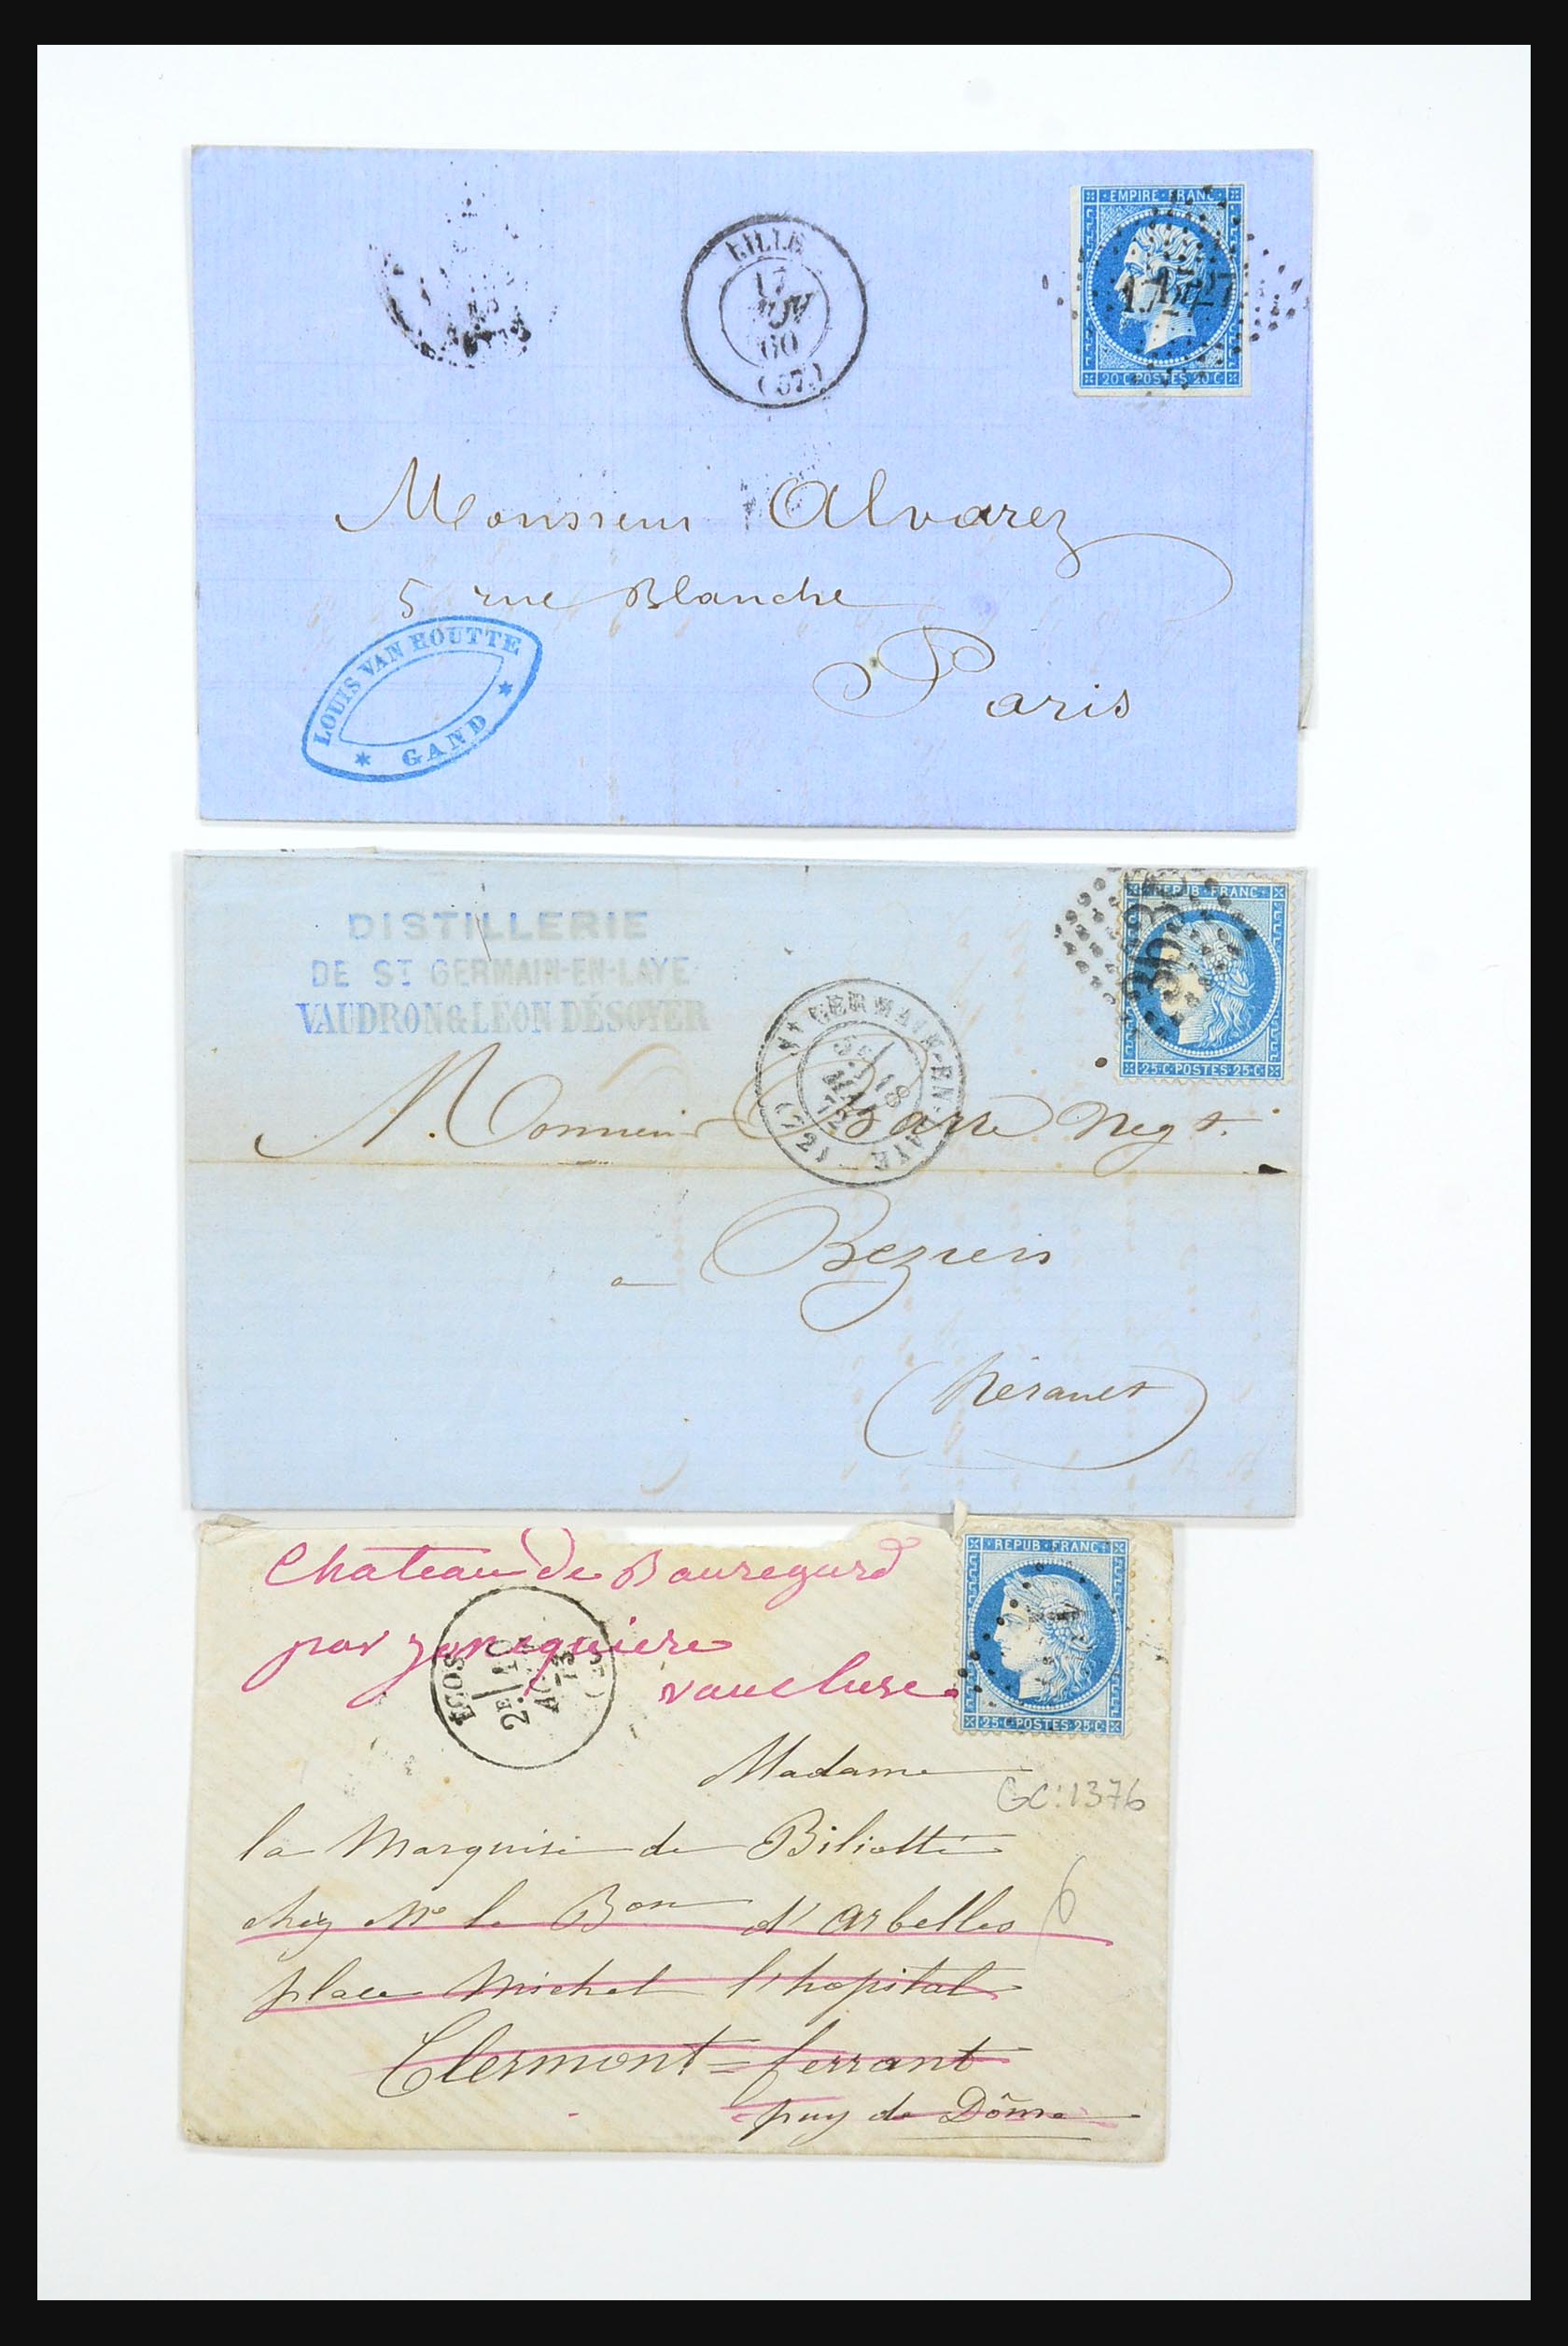 EMPIRE · FRANC
LILLE
17
NOV
60
1727
20 C POSTES 20 C
Monsieur Alvarez
5 rue Blanche
Paris
LOUIS VAN HOUTTE
GAND
REPUB · FRANC
DISTILLERIE
DE ST GERMAIN-EN-LAYE
VAUDRON & LÉON DÉSOYER
ST GERMAIN-EN-LAYE
18
72
(72)
25 · C · POSTES · 25 · C
Monsieur Barre Negt.
a Beziers
(Hérault)
REPUB · FRANC
Chateau de Bauregard
par Jonequiere
vaucluse.
ECOS
2E
73
25 · C · POSTES · 25 · C
Madame
GC:1376
la Marquise de Biliotti
chez Mr le Bon d'Arbelles
6
place Michel l'hopital
Clermont=ferrant
puy de Dôme